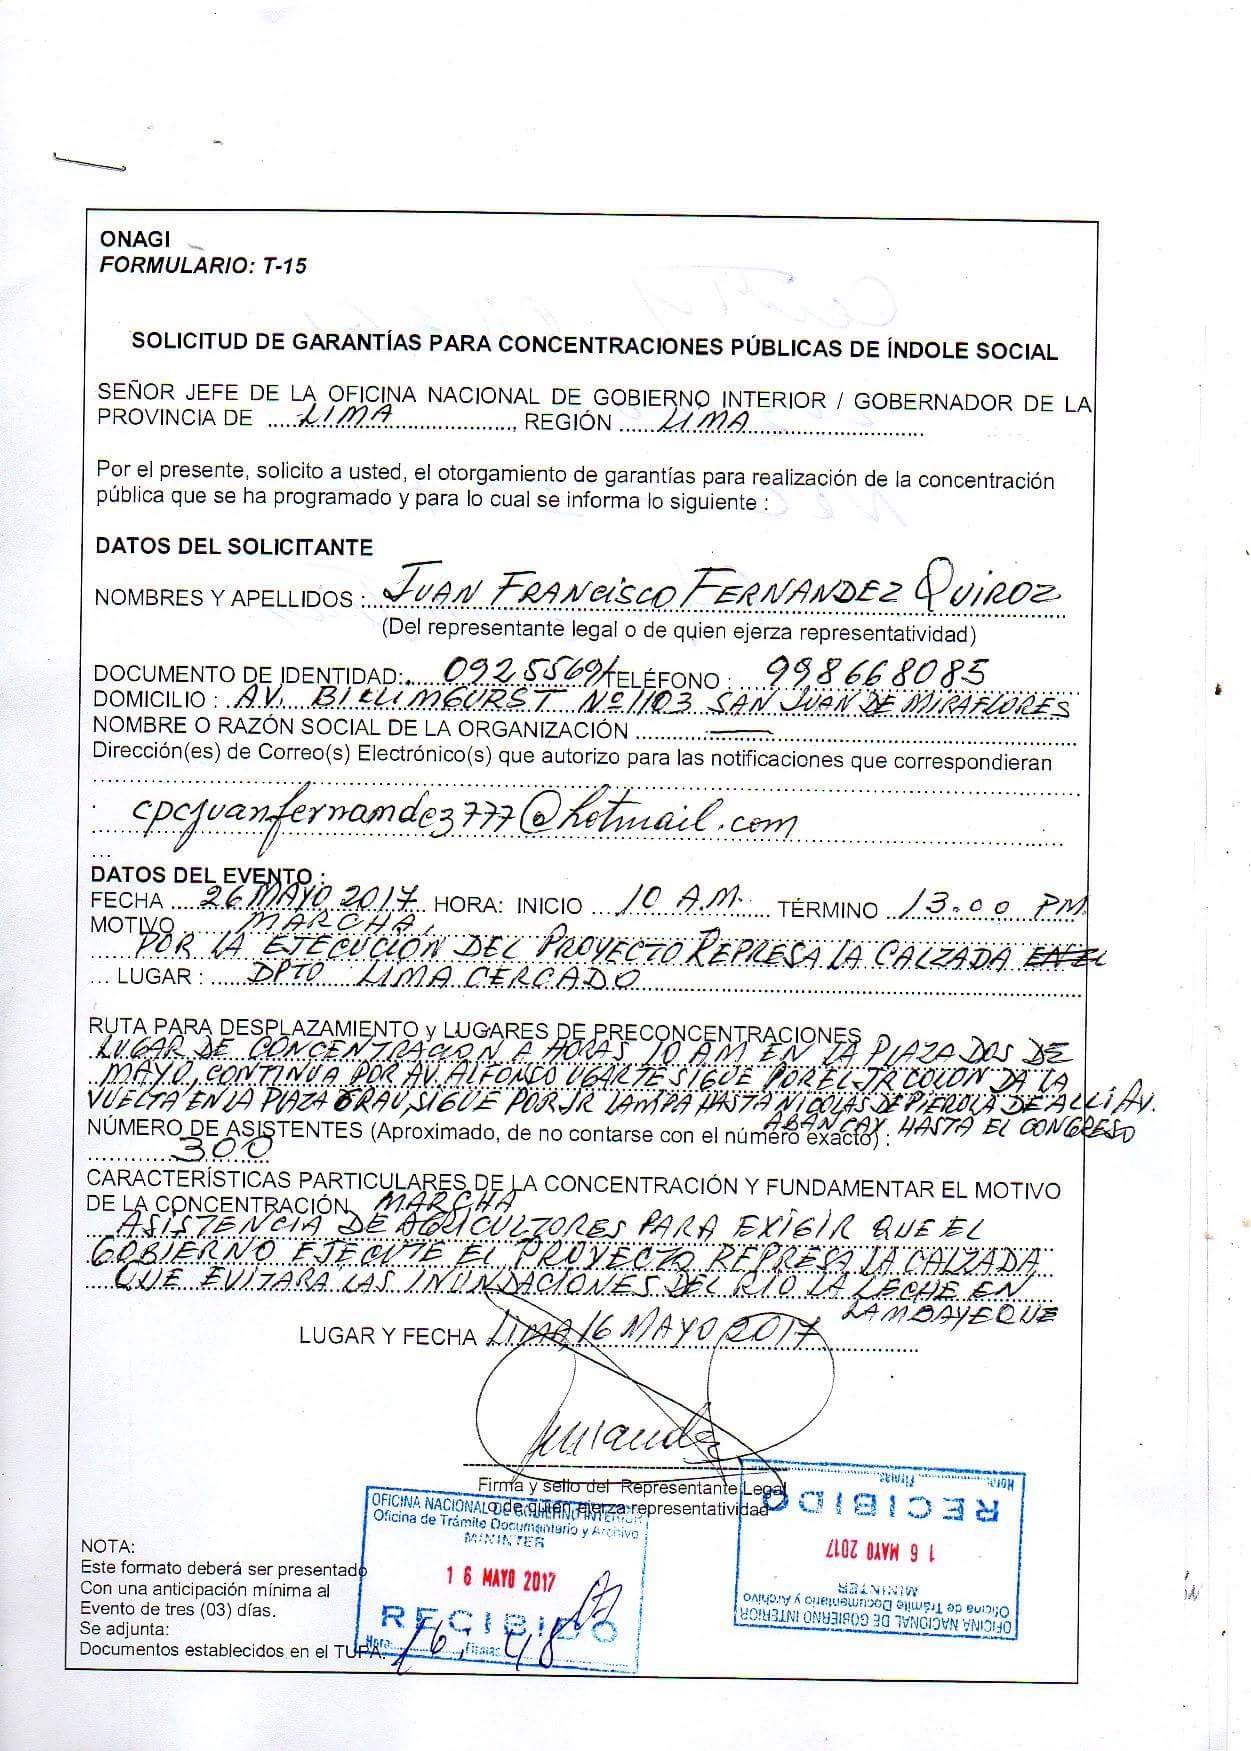 ONAGI
FORMULARIO: T-15
SOLICITUD DE GARANTÍAS PARA CONCENTRACIONES PÚBLICAS DE ÍNDOLE SOCIAL
SEÑOR JEFE DE LA OFICINA NACIONAL DE GOBIERNO INTERIOR / GOBERNADOR DE LA
PROVINCIA DE ..... LIMA ....................., REGIÓN ..... LIMA ..........................
Por el presente, solicito a usted, el otorgamiento de garantías para realización de la concentración
pública que se ha programado y para lo cual se informa lo siguiente :
DATOS DEL SOLICITANTE
NOMBRES Y APELLIDOS : JUAN FRANCISCO FERNANDEZ QUIROZ
(Del representante legal o de quien ejerza representatividad)
DOCUMENTO DE IDENTIDAD: 09255691 TELÉFONO : 998668085
DOMICILIO : AV. BILLIMGURST Nº 1103 SAN JUAN DE MIRAFLORES
NOMBRE O RAZÓN SOCIAL DE LA ORGANIZACIÓN ..........—..........
Dirección(es) de Correo(s) Electrónico(s) que autorizo para las notificaciones que correspondieran
cpcjuanfernandez777@hotmail.com
DATOS DEL EVENTO :
FECHA .... 26 MAYO 2017 HORA: INICIO ... 10 A.M. .... TÉRMINO .. 13.00 PM
MOTIVO ..... MARCHA,
POR LA EJECUCIÓN DEL PROYECTO REPRESA LA CALZADA EN EL
... LUGAR : ...... DPTO LIMA CERCADO
RUTA PARA DESPLAZAMIENTO y LUGARES DE PRECONCENTRACIONES
LUGAR DE CONCENTRACION A HORAS 10 AM EN LA PLAZA DOS DE
MAYO, CONTINUA POR AV. ALFONSO UGARTE SIGUE POR EL JR COLON DA LA
VUELTA EN LA PLAZA GRAU SIGUE POR JR LAMPA HASTA NICOLAS DE PIEROLA DE ALLI AV.
ABANCAY HASTA EL CONGRESO
NÚMERO DE ASISTENTES (Aproximado, de no contarse con el número exacto) :
............ 300
CARACTERÍSTICAS PARTICULARES DE LA CONCENTRACIÓN Y FUNDAMENTAR EL MOTIVO
DE LA CONCENTRACIÓN MARCHA
ASISTENCIA DE AGRICULTORES PARA EXIGIR QUE EL
GOBIERNO EJECUTE EL PROYECTO REPRESA LA CALZADA
QUE EVITARA LAS INUNDACIONES DEL RIO LA LECHE EN
LAMBAYEQUE
LUGAR Y FECHA LIMA 16 MAYO 2017
Firma y sello del Representante Legal
o de quien ejerza representatividad
OFICINA NACIONAL DE GOBIERNO INTERIOR
Oficina de Trámite Documentario y Archivo
MININTER
16 MAYO 2017
RECIBIDO
Hora: 16:48 Firma:
OFICINA NACIONAL DE GOBIERNO INTERIOR
Oficina de Trámite Documentario y Archivo
MININTER
16 MAYO 2017
RECIBIDO
Hora: Firma:
NOTA:
Este formato deberá ser presentado
Con una anticipación mínima al
Evento de tres (03) días.
Se adjunta:
Documentos establecidos en el TUPA.